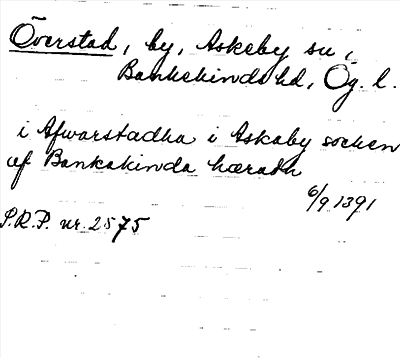 Överstad, by, Askeby sn,
Bankekinds hd, Ög. l.
i Afwarstadha i Askaby sochen
af Bankakinda hæradh
6/9 1391
S.R.P. nr. 2575